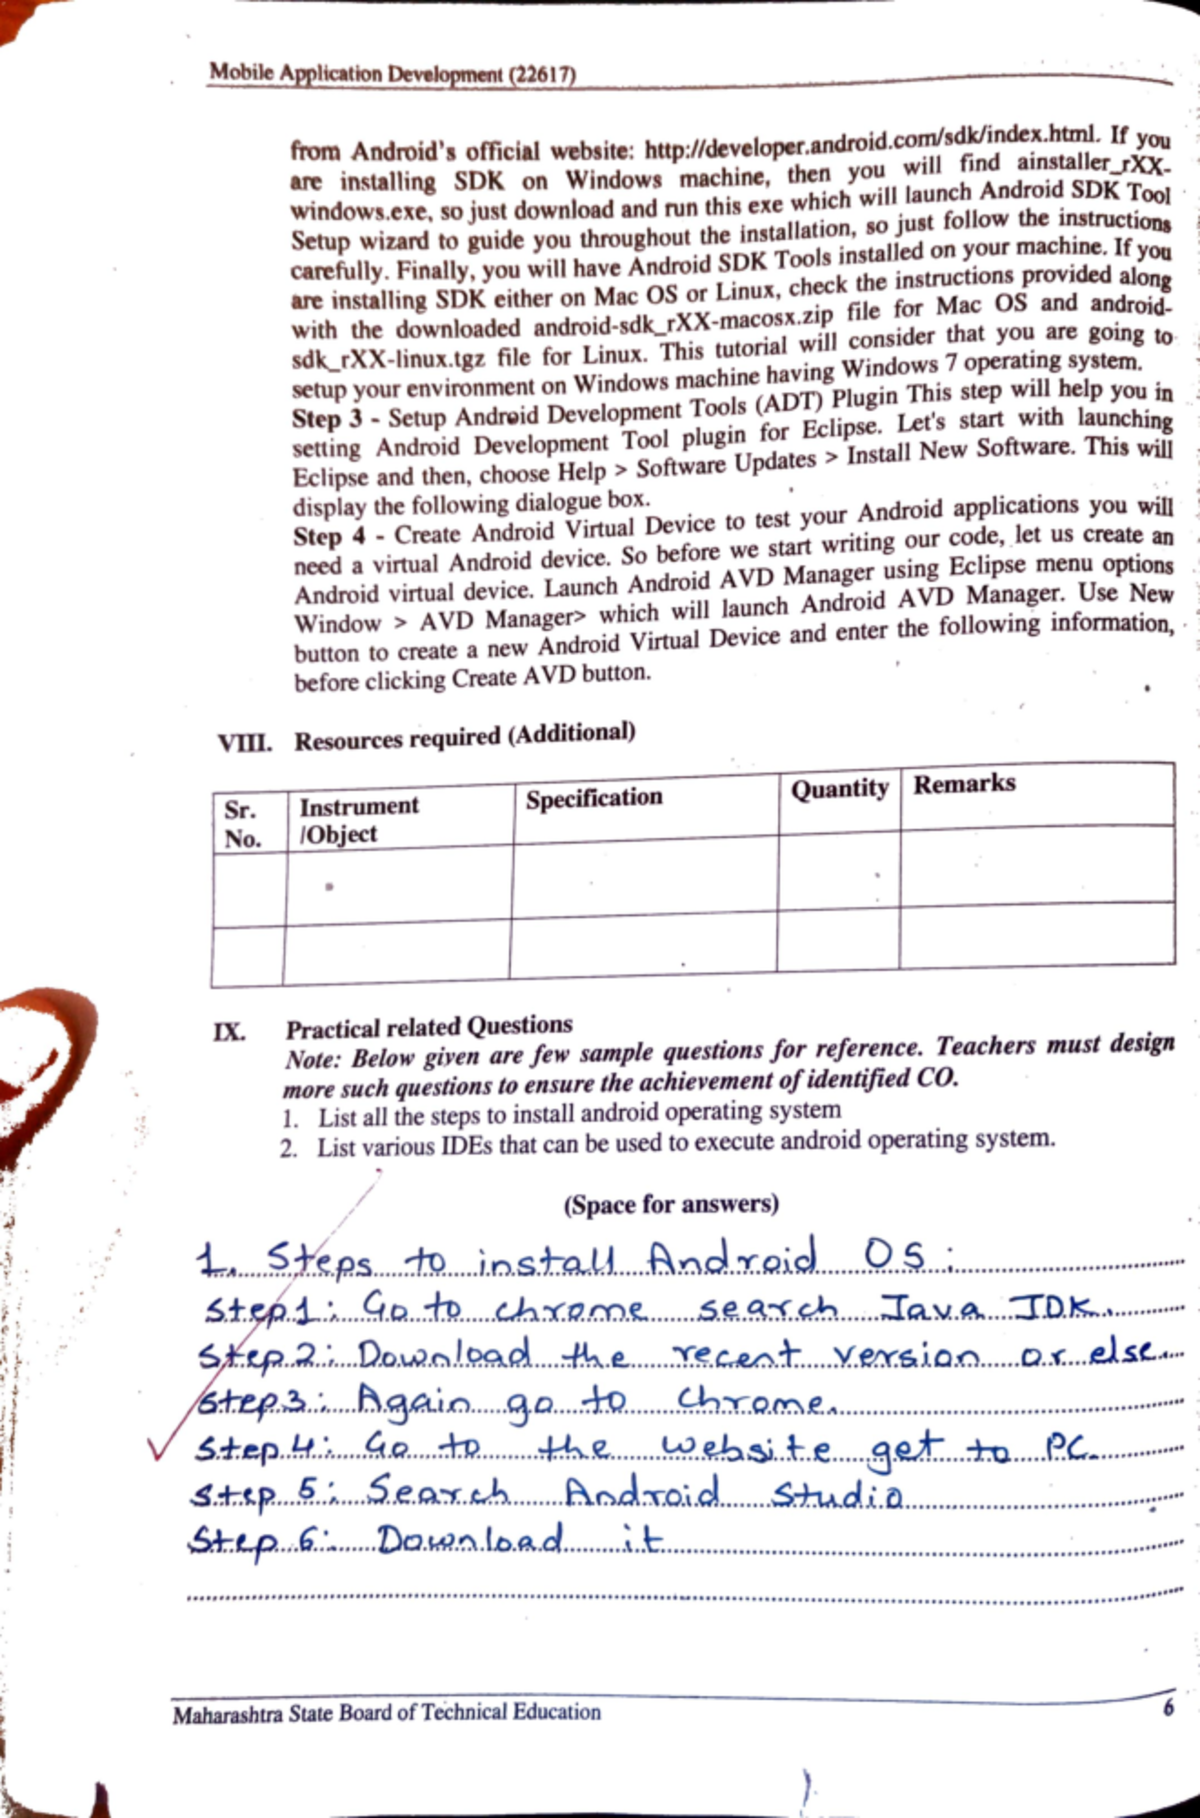 Mobile Application Development (22617)
from Android's official website: http://developer.android.com/sdk/index.html. If you
are installing SDK on Windows machine, then you will find ainstaller_rXX-
windows.exe, so just download and run this exe which will launch Android SDK Tool
Setup wizard to guide you throughout the installation, so just follow the instructions
carefully. Finally, you will have Android SDK Tools installed on your machine. If you
are installing SDK either on Mac OS or Linux, check the instructions provided along
with the downloaded android-sdk_rXX-macosx.zip file for Mac OS and android-
sdk_rXX-linux.tgz file for Linux. This tutorial will consider that you are going to
setup your environment on Windows machine having Windows 7 operating system.
Step 3 - Setup Android Development Tools (ADT) Plugin This step will help you in
setting Android Development Tool plugin for Eclipse. Let's start with launching
Eclipse and then, choose Help > Software Updates > Install New Software. This will
display the following dialogue box.
Step 4 - Create Android Virtual Device to test your Android applications you will
need a virtual Android device. So before we start writing our code, let us create an
Android virtual device. Launch Android AVD Manager using Eclipse menu options
Window > AVD Manager> which will launch Android AVD Manager. Use New
button to create a new Android Virtual Device and enter the following information,
before clicking Create AVD button.
VIII. Resources required (Additional)
Sr. No. Instrument /Object Specification Quantity Remarks
IX. Practical related Questions
Note: Below given are few sample questions for reference. Teachers must design
more such questions to ensure the achievement of identified CO.
1. List all the steps to install android operating system
2. List various IDEs that can be used to execute android operating system.
(Space for answers)
1. Steps to install Android OS :
Step1: Go to chrome search Java JDK.
Step 2: Download the recent version or else.
Step3: Again go to chrome.
Step 4: Go to the website get to PC.
Step 5: Search Android Studio
Step 6: Download it
Maharashtra State Board of Technical Education
6